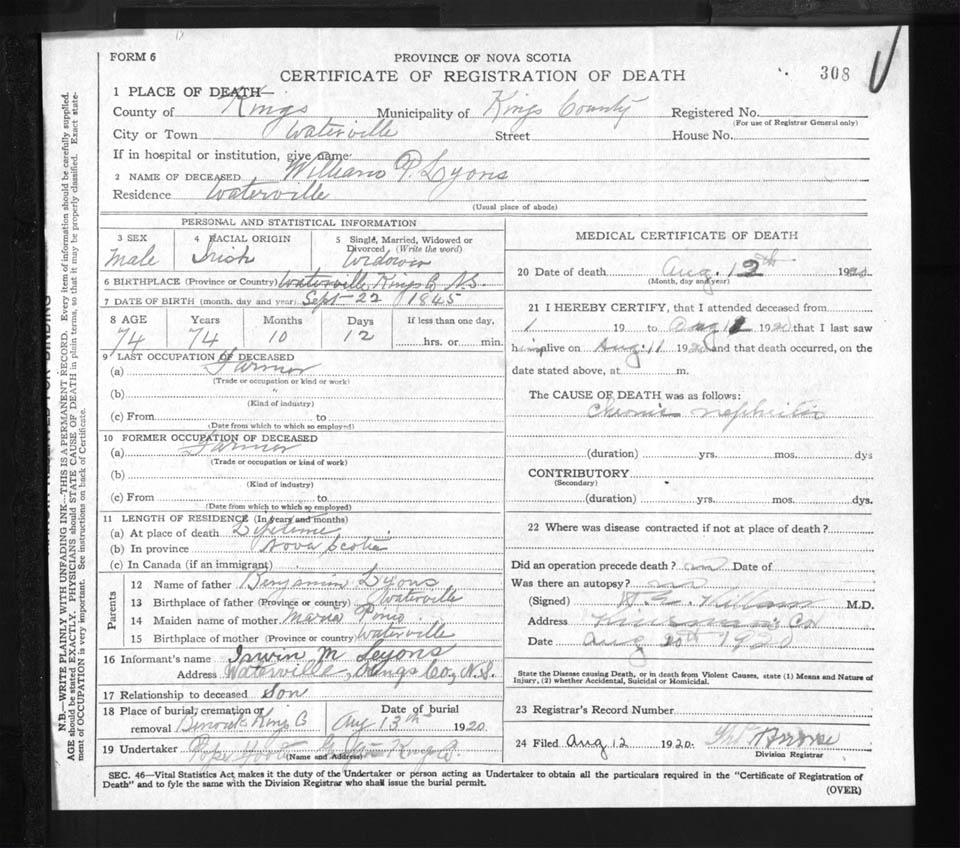 FORM 6
PROVINCE OF NOVA SCOTIA
CERTIFICATE OF REGISTRATION OF DEATH
308
1 PLACE OF DEATH—
County of Kings Municipality of Kings County Registered No.
(For use of Registrar General only)
City or Town Waterville Street House No.
If in hospital or institution, give name
2 NAME OF DECEASED William P. Lyons
Residence Waterville
(Usual place of abode)
PERSONAL AND STATISTICAL INFORMATION
3 SEX 4 RACIAL ORIGIN 5 Single, Married, Widowed or Divorced (Write the word)
Male Irish Widower
6 BIRTHPLACE (Province or Country) Waterville, Kings Co N.S.
7 DATE OF BIRTH (month, day and year) Sept 22 1845
8 AGE Years Months Days If less than one day,
74 74 10 12 hrs. or min.
9 LAST OCCUPATION OF DECEASED
(a) Farmer
(Trade or occupation or kind or work)
(b)
(Kind of industry)
(c) From to
(Date from which to which so employed)
10 FORMER OCCUPATION OF DECEASED
(a) Farmer
(Trade or occupation or kind of work)
(b)
(Kind of industry)
(c) From to
(Date from which to which so employed)
11 LENGTH OF RESIDENCE (In years and months)
(a) At place of death Lifetime
(b) In province Nova Scotia
(c) In Canada (if an immigrant)
Parents
12 Name of father Benjamin Lyons
13 Birthplace of father (Province or country) Waterville
14 Maiden name of mother
15 Birthplace of mother (Province or country) Waterville
16 Informant's name Irwin M Lyons
Address Waterville, Kings Co, N.S.
17 Relationship to deceased Son
18 Place of burial, cremation or removal Date of burial
Kings Co Aug 13th 1920
19 Undertaker Kings Co.
(Name and Address)
MEDICAL CERTIFICATE OF DEATH
20 Date of death Aug. 12th 1920
(Month, day and year)
21 I HEREBY CERTIFY, that I attended deceased from
19 to Aug 1920 that I last saw
him alive on Aug. 11 1920 and that death occurred, on the
date stated above, at m.
The CAUSE OF DEATH was as follows:
Chronic nephritis
(duration) yrs. mos. dys
CONTRIBUTORY
(Secondary)
(duration) yrs. mos. dys.
22 Where was disease contracted if not at place of death?
Did an operation precede death? no Date of
Was there an autopsy? no
(Signed) M.D.
Address
Date Aug 1920
State the Disease causing Death, or in death from Violent Causes, state (1) Means and Nature of
Injury, (2) whether Accidental, Suicidal or Homicidal.
23 Registrar's Record Number
24 Filed Aug 12 1920
Division Registrar
SEC. 46—Vital Statistics Act makes it the duty of the Undertaker or person acting as Undertaker to obtain all the particulars required in the "Certificate of Registration of
Death" and to fyle the same with the Division Registrar who shall issue the burial permit.
(OVER)
N.B.—WRITE PLAINLY WITH UNFADING INK—THIS IS A PERMANENT RECORD. Every item of information should be carefully supplied.
AGE should be stated EXACTLY. PHYSICIANS should STATE CAUSE OF DEATH in plain terms, so that it may be properly classified. Exact state-
ment of OCCUPATION is very important. See instructions on back of Certificate.